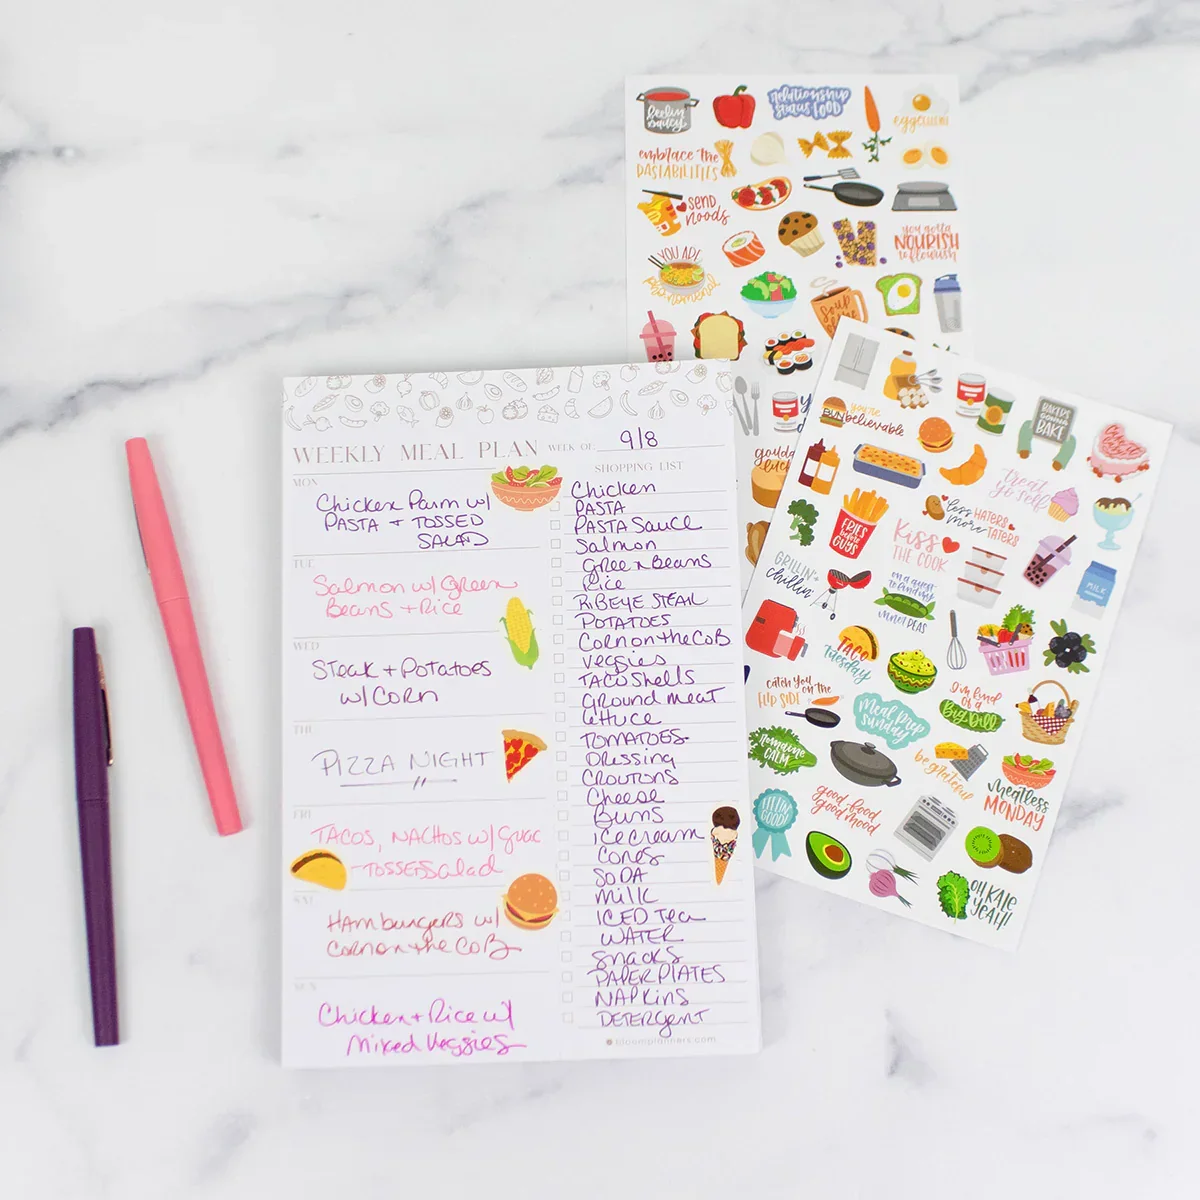 WEEKLY MEAL PLAN
WEEK OF: 9/8
MON
Chicken Parm w/
PASTA + TOSSED
SALAD
TUE
Salmon w/ Green
Beans + Rice
WED
Steak + Potatoes
w/ CORN
THU
PIZZA NIGHT
FRI
TACOS, NACHOS w/ Guac
- TOSSED Salad
SAT
HAmburgers w/
Corn on the CoB
SUN
Chicken + Rice w/
Mixed Veggies
SHOPPING LIST
Chicken
PASTA
PASTA Sauce
Salmon
Green Beans
Rice
RIBEYE STEAK
POTATOES
Corn on the CoB
Veggies
TACO Shells
Ground meat
lettuce
TOMATOES
Dressing
CROUTONS
Cheese
Buns
ice cream
Cones
SODA
Milk
ICED Tea
WATER
Snacks
PAPER PLATES
NAPKINS
DETERGENT
bloomplanners.com
feelin'
saucy
relationship
status: FOOD
eggcellent
embrace the
PASTABILITIES
SEND
noods
you gotta
NOURISH
to flourish
YOU ARE
phonomenal
SOUP
gouda
luck
you're
BUNbelievable
BAKERS
GONNA
BAKE
treat
yo self
less HATERS
more TATERS
FRIES
before
GUYS
KISS
THE COOK
GRILLIN' +
chillin'
on a quest
to find my
inner PEAS
MILK
TACO
TUESDAY
CATCH YOU
on the
FLIP SIDE
meal prep
SUNDAY
I'm kind
of a
BIG DILL
romaine
CALM
be grateful
meatless
MONDAY
FEELIN'
GOOD!
good food
good mood
OH KALE
YEAH!